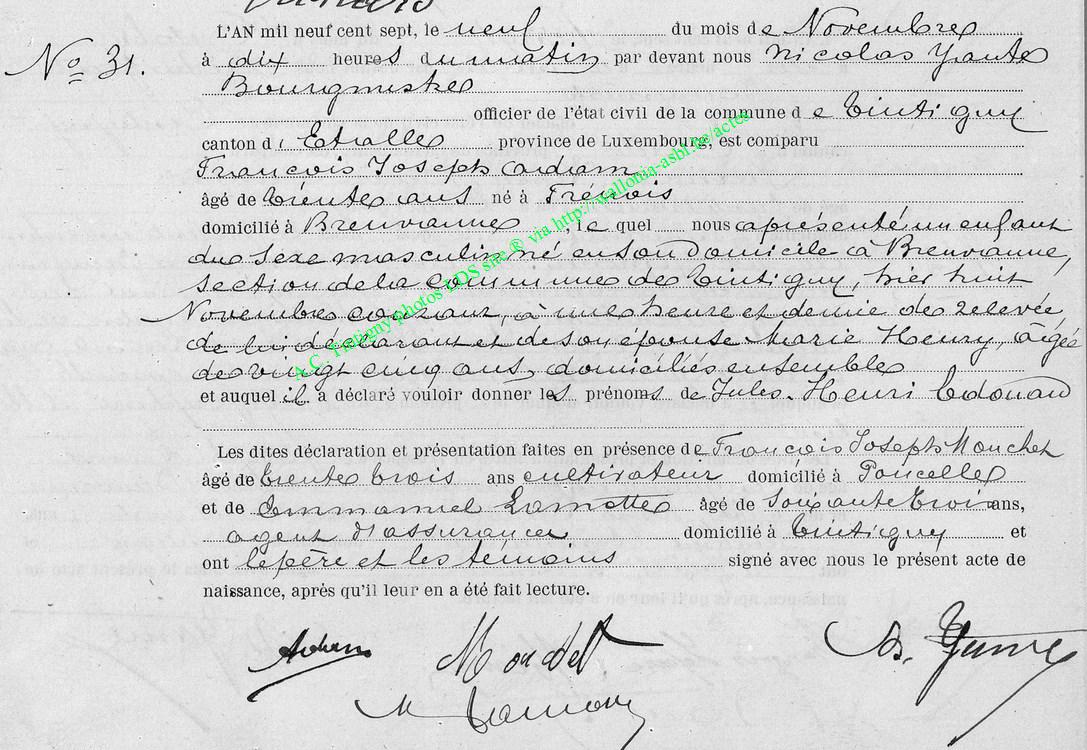 L'AN mil neuf cent sept, le neuf du mois de Novembre
No 31.
à dix heures du matin par devant nous Nicolas
Bourgmestre
officier de l'état civil de la commune de Tintigny
canton d'Etalle province de Luxembourg, est comparu
François Joseph Adam
âgé de trente ans né à Frénois
domicilié à Breuvanne, lequel nous a présenté un enfant
du sexe masculin né en son domicile à Breuvanne,
section de la commune de Tintigny, hier huit
Novembre courant, à une heure et demie de relevée
de lui déclarant et de son épouse Marie Henry, âgée
de vingt cinq ans, domiciliés ensemble
et auquel il a déclaré vouloir donner les prénoms de Jules Henri Edouard
Les dites déclaration et présentation faites en présence de François Joseph Mouchet
âgé de trente trois ans cultivateur domicilié à Poncelle
et de Emmanuel Lamotte âgé de soixante trois ans,
agent d'assurances domicilié à Tintigny et
ont le père et les témoins signé avec nous le présent acte de
naissance, après qu'il leur en a été fait lecture.
Adam
A.C. Tintigny photos LDS site ® via http://wallonia-asbl.be/actes